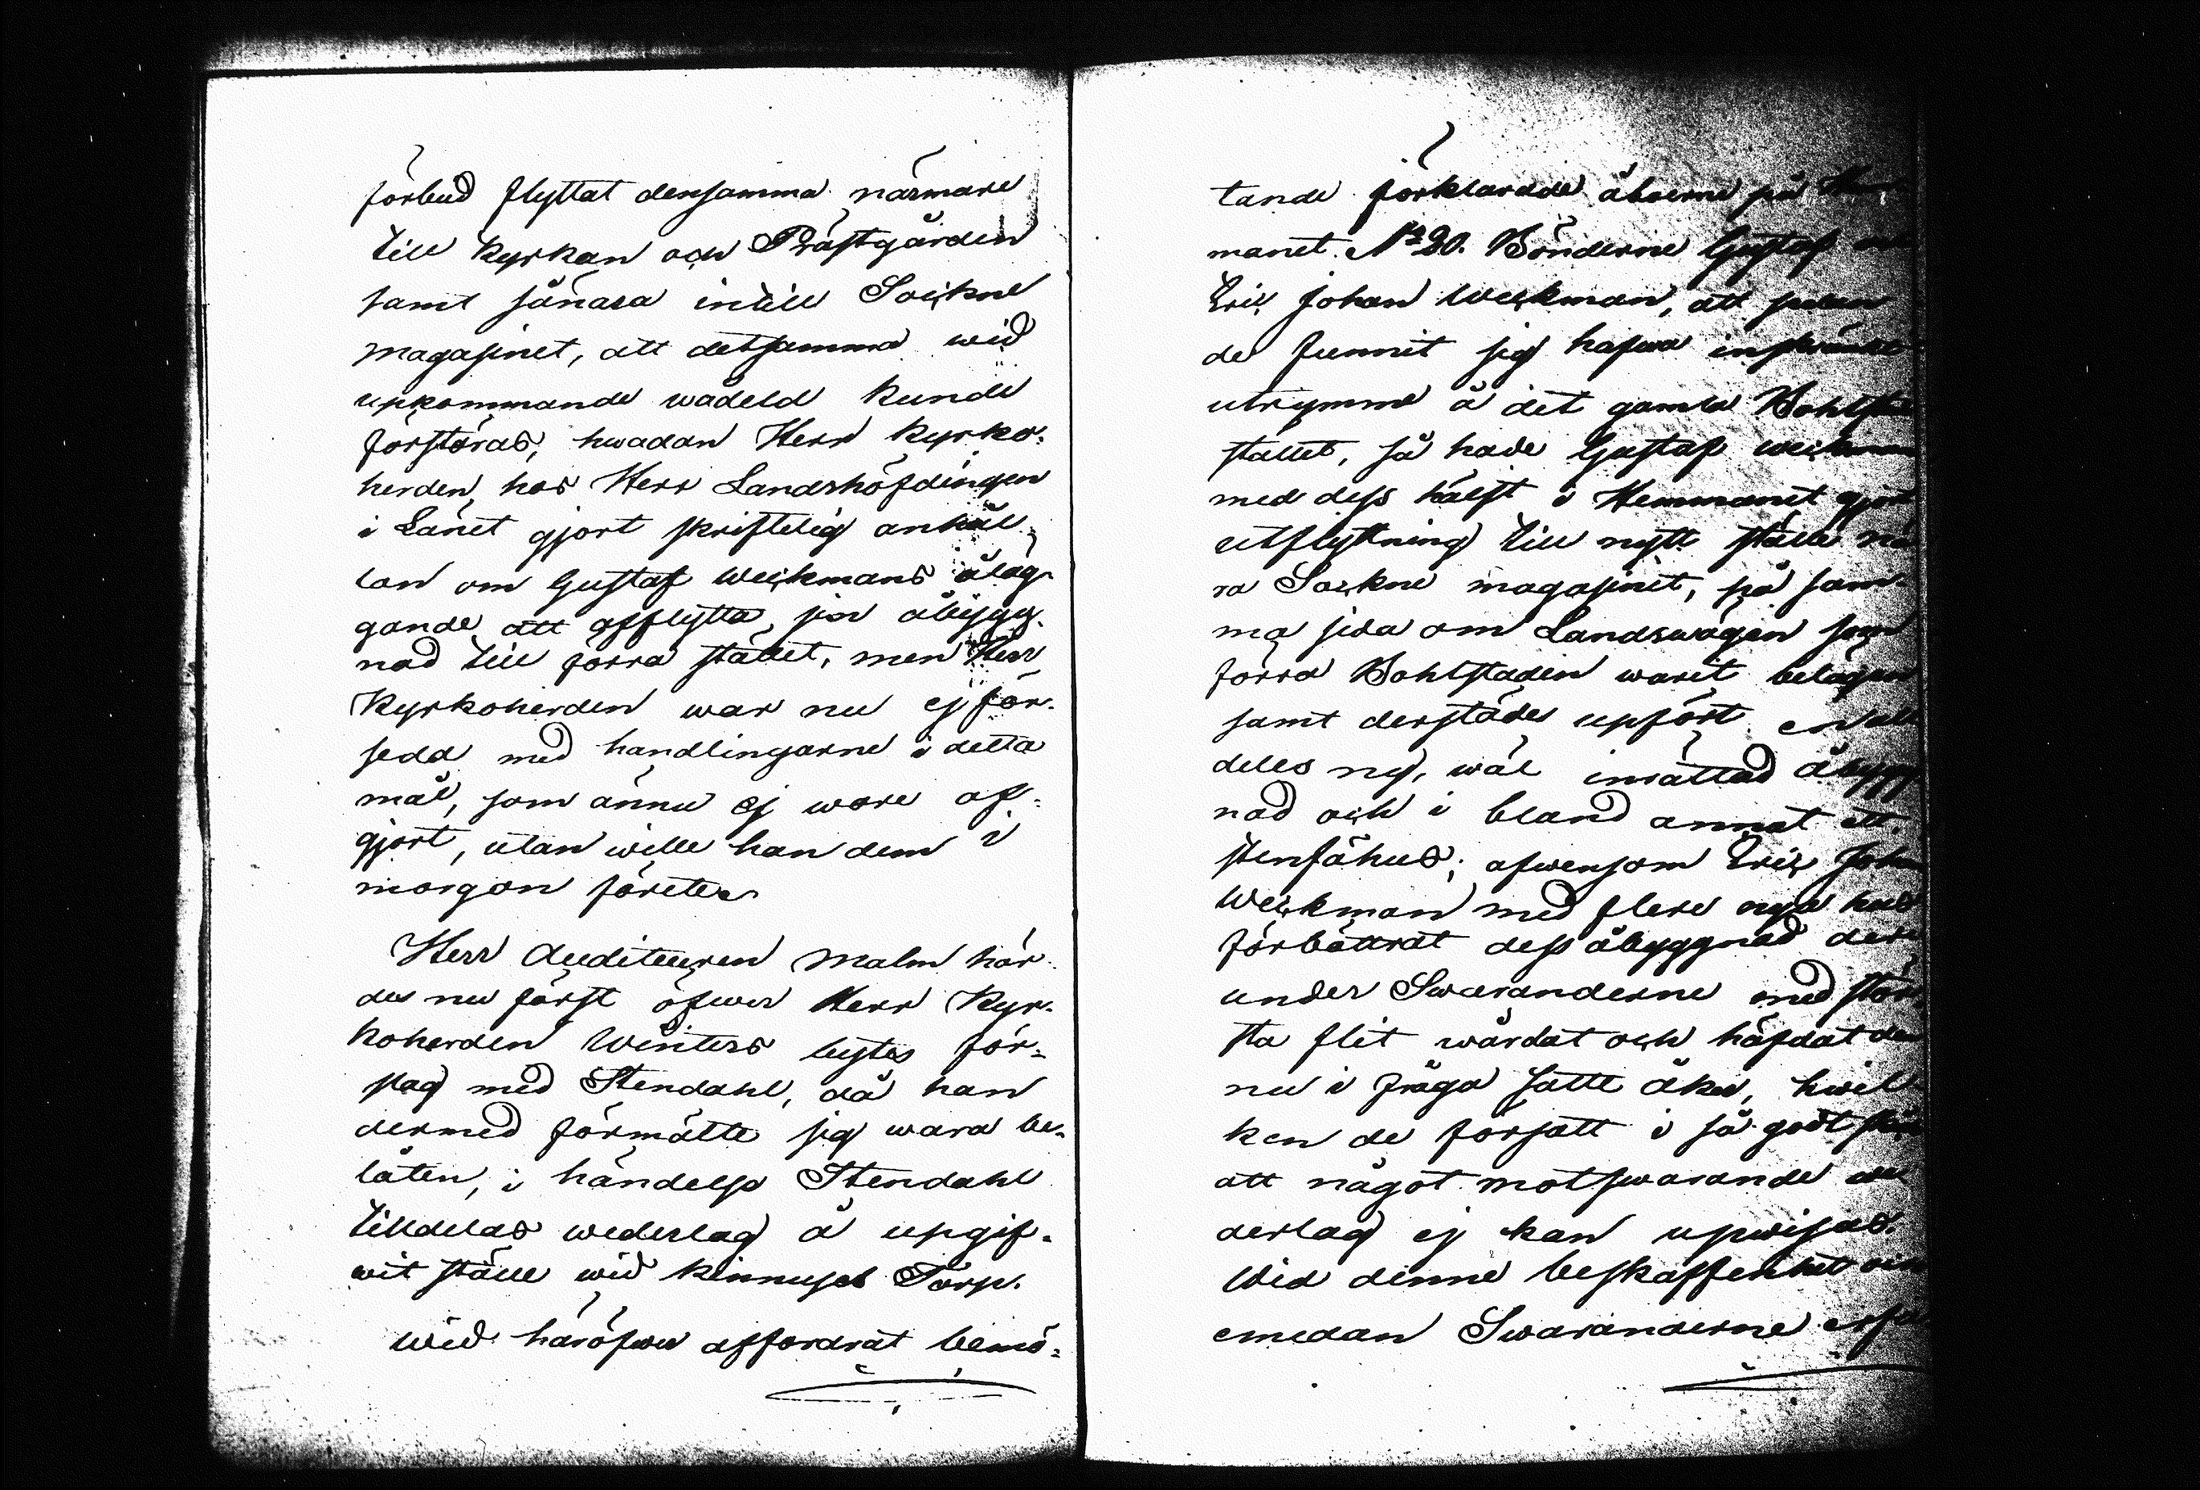 förbud flyttat densamma närmare
till kyrkan och Prästgården
samt så nära intill Sockne
magasinet, att detsamma wid
upkommande wådeld kunde
förstöras, hwadan Herr Kyrko-
herden, hos Herr Landshöfdingen
i Länet gjort skriftelig anhål-
lan om Gustaf Weckmans åläg-
gande att afflytta sin åbygg-
nad till förra stället, men Herr
Kyrkoherden war nu ej för-
sedd med handlingarne i detta
mål, som ännu ej wore af-
gjort, utan wille han dem i
morgon förete.
Herr Auditeuren Malm hör-
des nu först öfwer Herr Kyr-
koherden Winters bytes för-
slag med Stendahl, då han
dermed förmälte sig wara be-
låten, i händelse Stendahl
tilldelas wederlag å upgif-
wit ställe wid Kinnusch Torp.
Wid häröfwer affordrat bemö-
tande förklarade åboerne på
manet No 20. Bönderne Gustaf och
Eric Johan Weckman, att sedan
de funnit sig hafwa inskränkt
utrymme å det gamla Bohlsta
stället, så hade Gustaf Weckman
med dess hälft i Hemmanet gjort
utflyttning till nytt ställe nä-
ra Sockne magasinet, på sam-
ma sida om Landswägen som
förra Bohlstaden warit belägen
samt derstädes upfört en all-
deles ny, wäl inrättad åbygg-
nad och i bland annat ett
stenfähus; äfwensom Eric Johan
Weckman med flere nya hus
förbättrat dess åbyggnad der-
under Swaranderne med störs-
ta flit wårdat och häfdat den
nu i fråga satte åker, hwil-
ken de försatt i så godt
att något motswarande we-
derlag ej kan upwisas.
Wid denne beskaffenhet
emedan Swaranderne